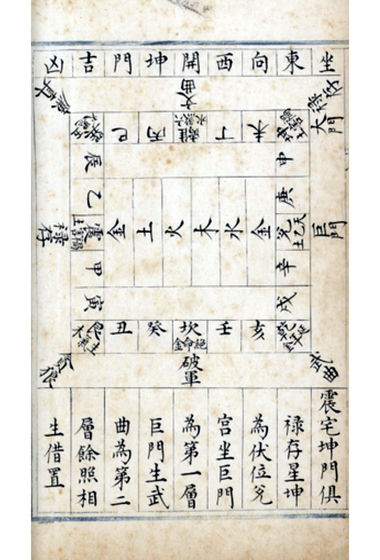 坐東向西開坤門吉凶
文曲
祿存
大門
廉貞
未丁離丙巳
申
辰
庚
乙
巨門
兌
金水木火土金
震
祿存
辛
甲
戌
寅
亥壬坎癸丑
絕命金
武曲
破軍
震宅坤門俱
祿存星坤
為伏位兌
宮坐巨門
為第一層
巨門生武
曲為第二
層餘照相
生借置